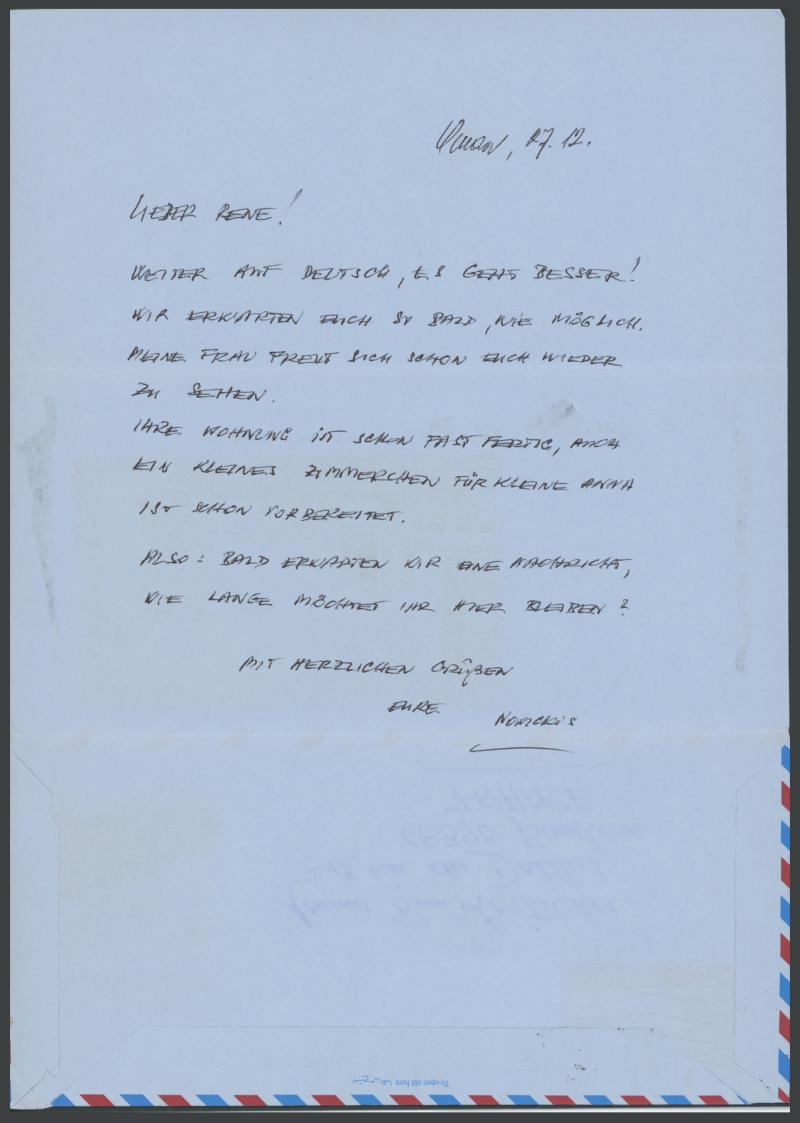 27.12.
LIEBER RENE!
WEITER AUF DEUTSCH, ES GEHT BESSER!
WIR ERWARTEN EUCH SO BALD, WIE MÖGLICH.
MEINE FRAU FREUT SICH SCHON EUCH WIEDER
ZU SEHEN.
IHRE WOHNUNG IST SCHON FAST FERTIG, AUCH
EIN KLEINES ZIMMERCHEN FÜR KLEINE ANNA
IST SCHON VORBEREITET.
ALSO: BALD ERWARTEN WIR EINE NACHRICHT,
WIE LANGE MÖCHTET IHR HIER BLEIBEN?
MIT HERZLICHEN GRÜßEN
EURE
To open slit here